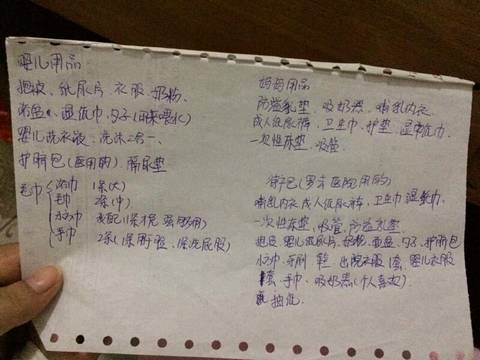 婴儿用品
抱被、纸尿片 衣服 奶粉、
浴盆、湿纸巾、勺子(用来喂水)
婴儿洗衣液、洗沐二合一、
护脐包(医用的)、隔尿垫
毛巾 浴巾 1条(大)
毛巾 2条(中)
方巾
手巾 2条(1条用 1条洗屁股)
奶妈用品
防溢乳垫、吸奶器、哺乳内衣
成人纸尿裤、卫生巾、护垫、湿纸巾、
一次性床垫、吸管
待产包(拿去医院用的)
哺乳内衣 成人纸尿裤、卫生巾 湿纸巾、
一次性床垫、吸管、防溢乳垫
抱被 婴儿纸尿片、奶粉、勺子、护脐包
牙刷 出院衣服1套、婴儿衣服
手巾、吸奶器(个人喜欢)
抽纸